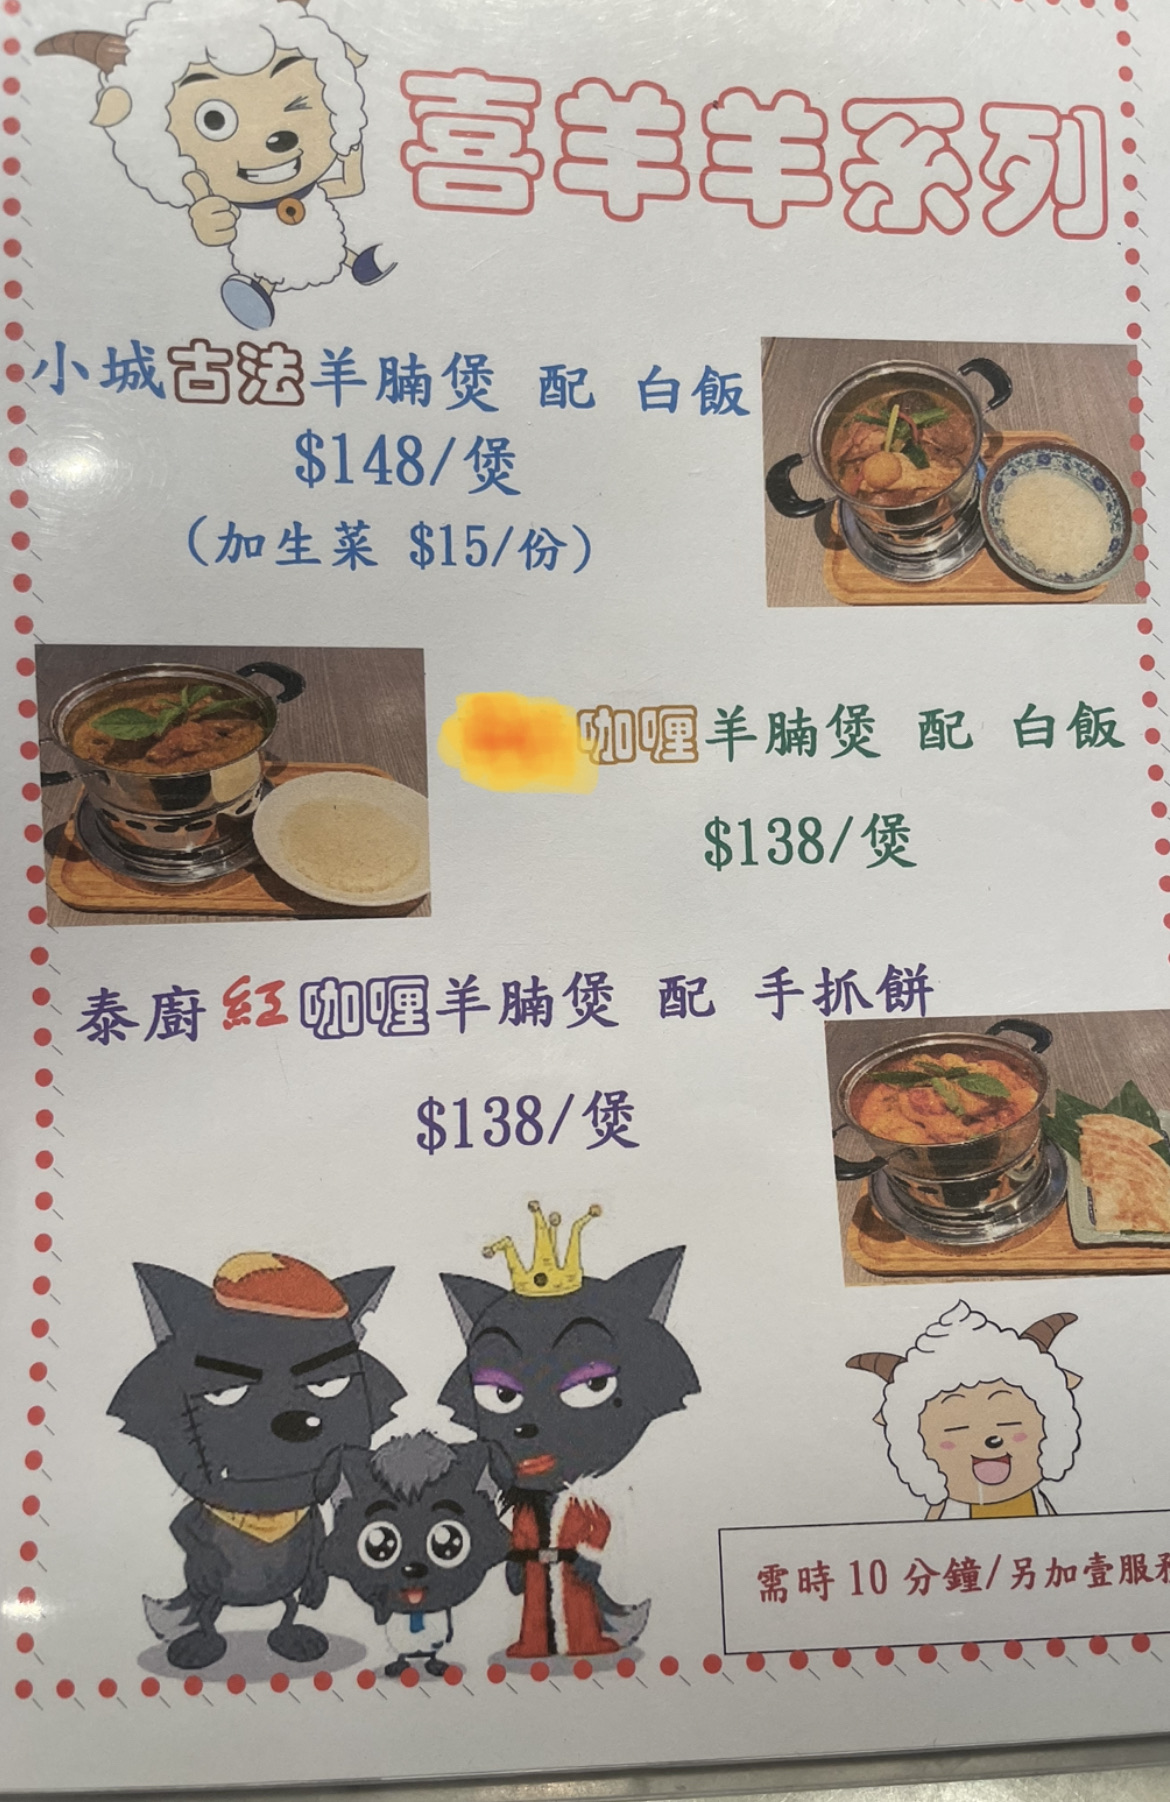 喜羊羊系列
小城古法羊腩煲 配 白飯
$148/煲
(加生菜 $15/份)
咖喱羊腩煲 配 白飯
$138/煲
泰廚紅咖喱羊腩煲 配 手抓餅
$138/煲
需時10分鐘/另加壹服務